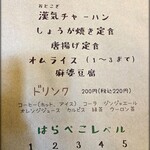 おとこぎ
漢気チャーハン
しょうが焼き定食
唐揚げ定食
オムライス（１～３まで）
麻婆豆腐
ドリンク 200円(税込220円)
コーヒー(ホット、アイス) コーラ ジンジャエール
オレンジジュース カルピス 緑茶 ウーロン茶
はらぺこレベル
1 2 3 4 5